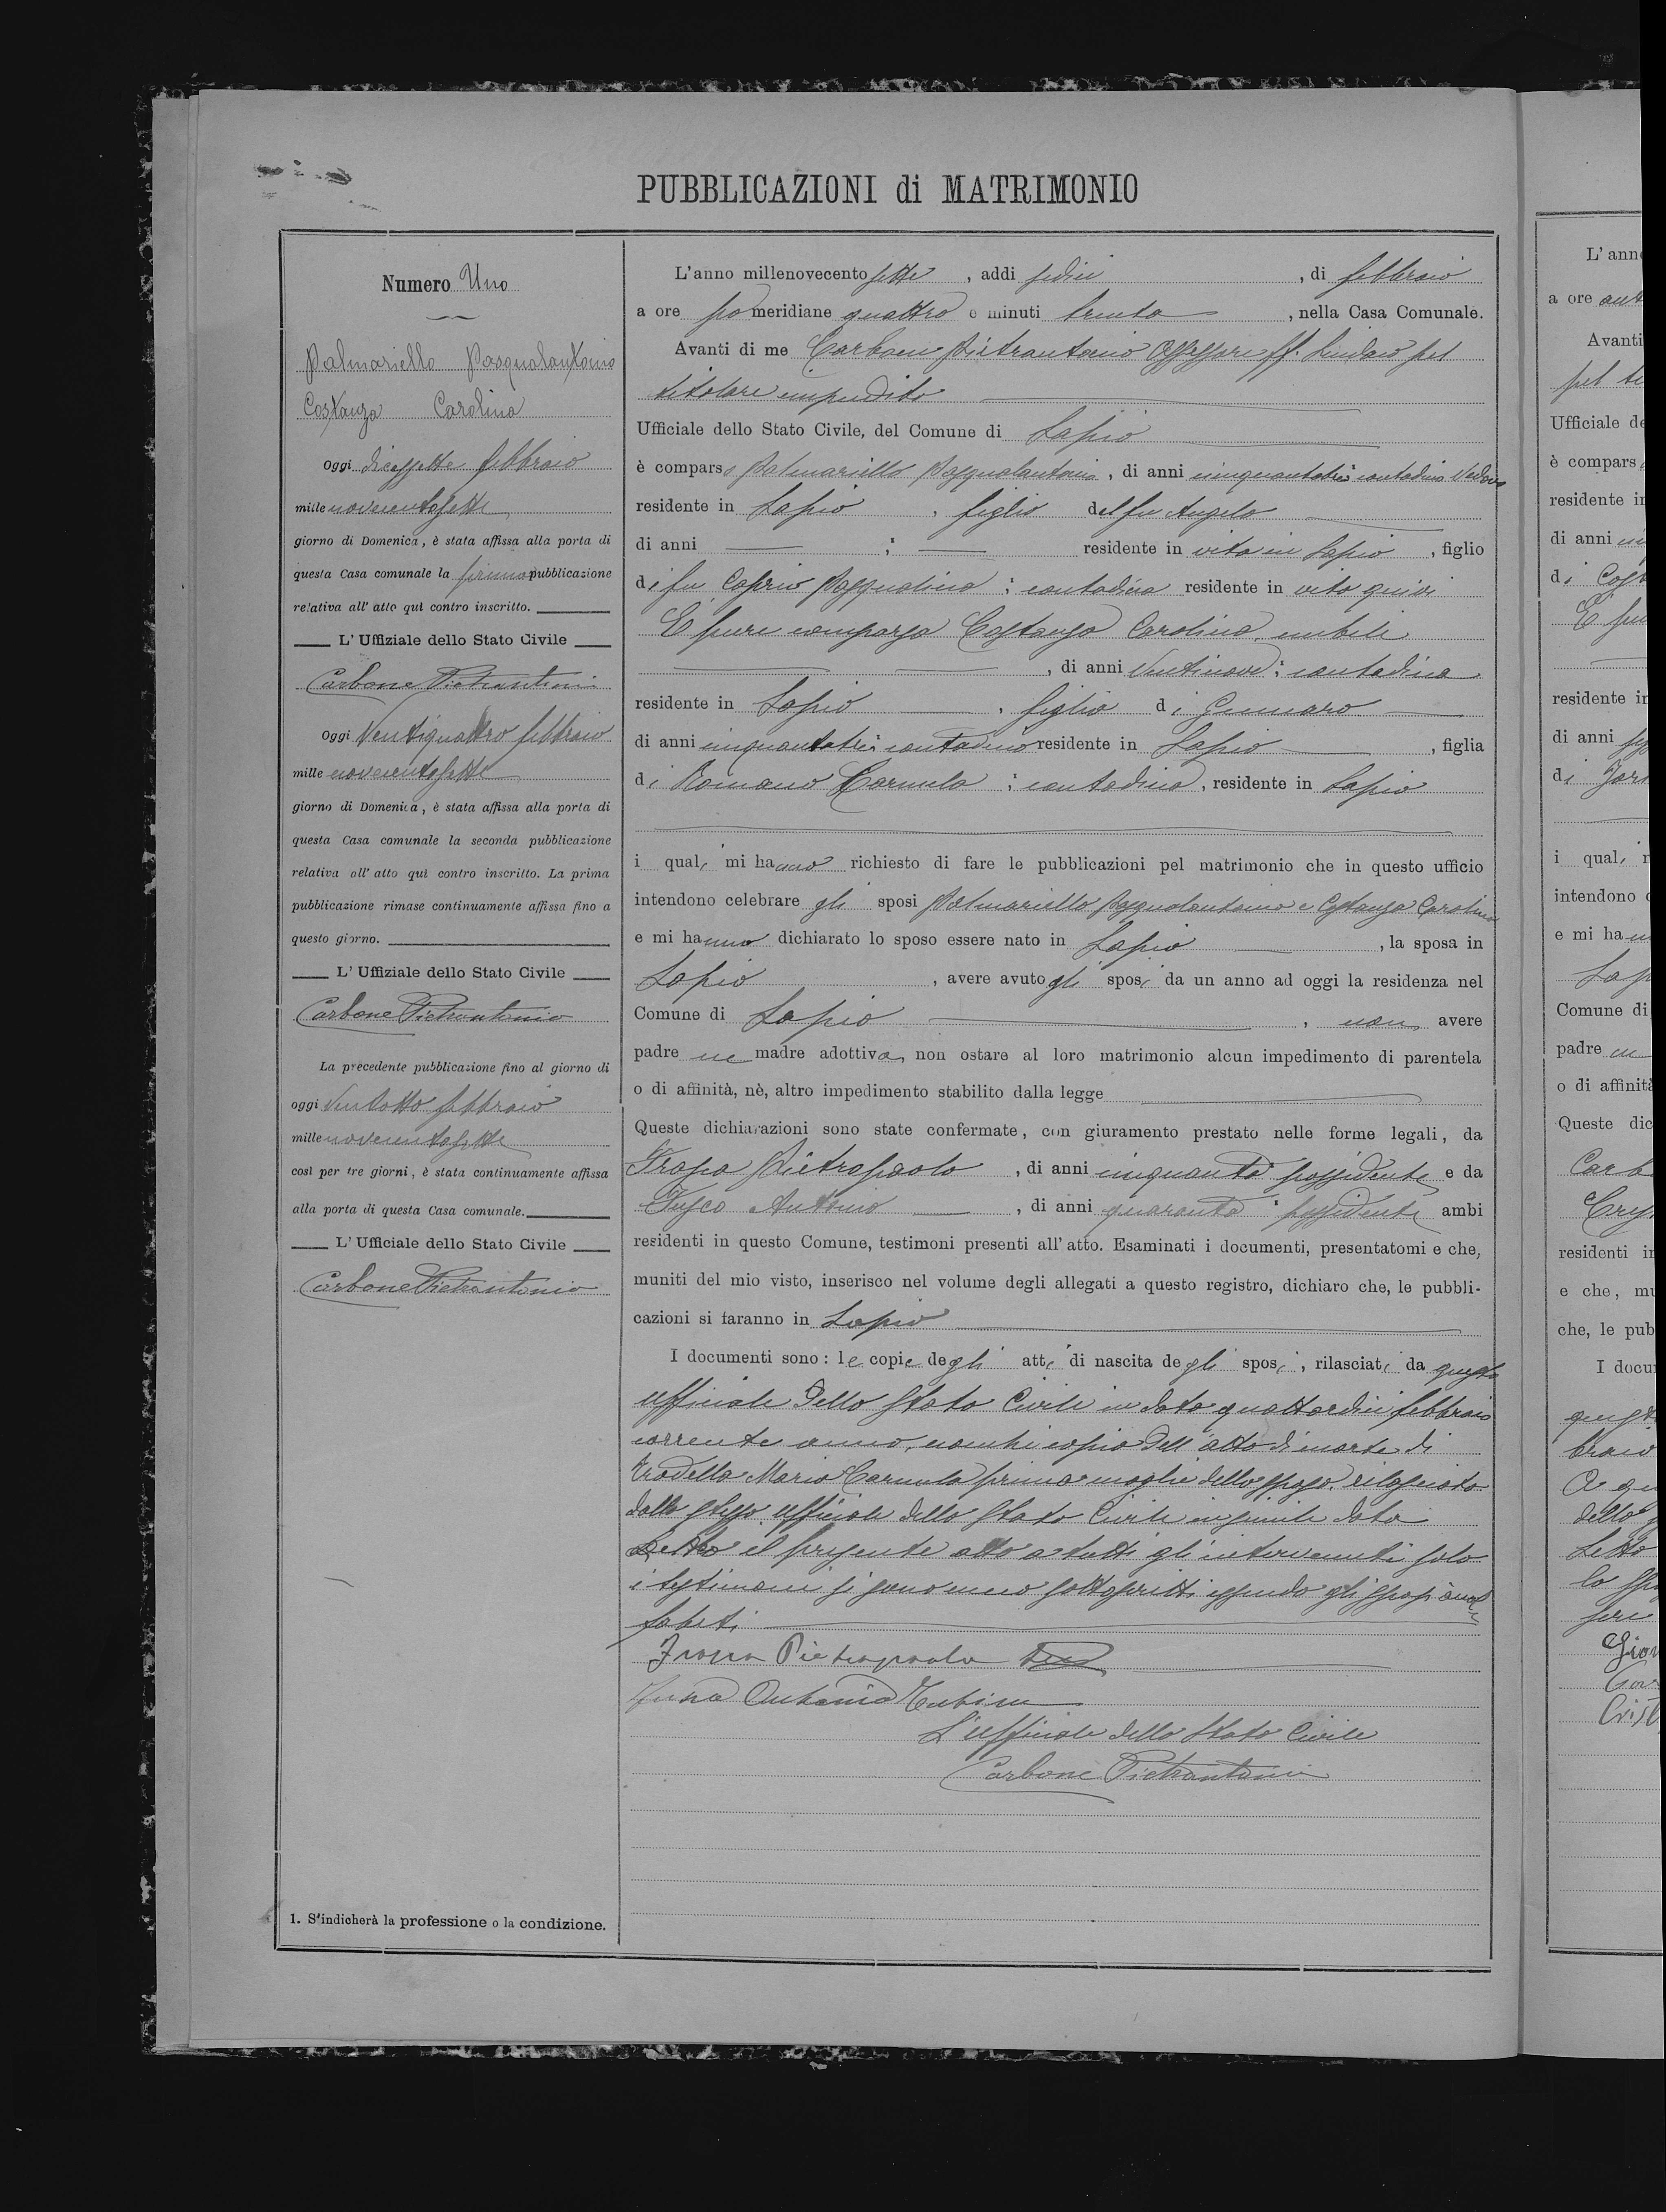 PUBBLICAZIONI di MATRIMONIO
Numero Uno
Palmariello Pasqualantonio
Costanza Carolina
Oggi diciassette febbraio
mille novecentosette
giorno di Domenica, è stata affissa alla porta di
questa Casa comunale la prima pubblicazione
relativa all' atto quì contro inscritto.
L' Uffiziale dello Stato Civile
Carbone Pietrantonio
Oggi Ventiquattro febbraio
mille novecentosette
giorno di Domenica, è stata affissa alla porta di
questa Casa comunale la seconda pubblicazione
relativa all' atto quì contro inscritto. La prima
pubblicazione rimase continuamente affissa fino a
questo giorno.
L' Uffiziale dello Stato Civile
Carbone Pietrantonio
La precedente pubblicazione fino al giorno di
oggi Ventotto febbraio
mille novecentosette
così per tre giorni, è stata continuamente affissa
alla porta di questa Casa comunale.
L' Ufficiale dello Stato Civile
Carbone Pietrantonio
1. S'indicherà la professione o la condizione.
L'anno millenovecento sette, addi sedici, di febbraio
a ore pomeridiane quattro e minuti trenta, nella Casa Comunale.
Avanti di me Carbone Pietrantonio Assessore ff. Sindaco pel
titolare impedito
Ufficiale dello Stato Civile, del Comune di Lapio
è comparso Palmariello Pasqualantonio, di anni cinquantatre contadino Vedovo
residente in Lapio, figlio del fu Angelo
di anni ; residente in vita in Lapio, figlio
di fu Caprio Pasqualina ; contadina residente in vita quivi
E pure comparsa Costanza Carolina, nubile
, di anni Ventinove ; contadina
residente in Lapio, figlia di Gennaro
di anni cinquantatre ; contadino residente in Lapio, figlia
di Romano Carmela ; contadina, residente in Lapio
i quali mi hanno richiesto di fare le pubblicazioni pel matrimonio che in questo ufficio
intendono celebrare gli sposi Palmariello Pasqualantonio e Costanza Carolina
e mi hanno dichiarato lo sposo essere nato in Lapio, la sposa in
Lapio, avere avuto gli sposi da un anno ad oggi la residenza nel
Comune di Lapio, non avere
padre ne madre adottiva, non ostare al loro matrimonio alcun impedimento di parentela
o di affinità, nè, altro impedimento stabilito dalla legge
Queste dichiarazioni sono state confermate, con giuramento prestato nelle forme legali, da
Pietropaolo, di anni cinquanta possidente e da
Antonio, di anni quaranta : possidente ambi
residenti in questo Comune, testimoni presenti all' atto. Esaminati i documenti, presentatomi e che,
muniti del mio visto, inserisco nel volume degli allegati a questo registro, dichiaro che, le pubbli-
cazioni si faranno in Lapio
I documenti sono: le copie degli atti di nascita degli sposi, rilasciati da questo
ufficiale dello Stato Civile in data quattordici febbraio
corrente anno, nonchè copia dell'atto di morte di
Maria Carmela prima moglie dello sposo, rilasciata
dallo stesso ufficiale dello Stato Civile in simile data
Letto il presente atto a tutti gli intervenuti solo
i testimoni si sono meco sottoscritti essendo gli sposi anal-
fabeti
Pietropaolo
Antonio
L'ufficiale dello Stato Civile
Carbone Pietrantonio
L'anno
a ore
Avanti
Ufficiale de
è compars
residente in
di anni
di
residente in
di anni
di
i quali
intendono
e mi ha
Comune di
padre
o di affinità
Queste dic
residenti in
e che, mu
che, le pub
I docu